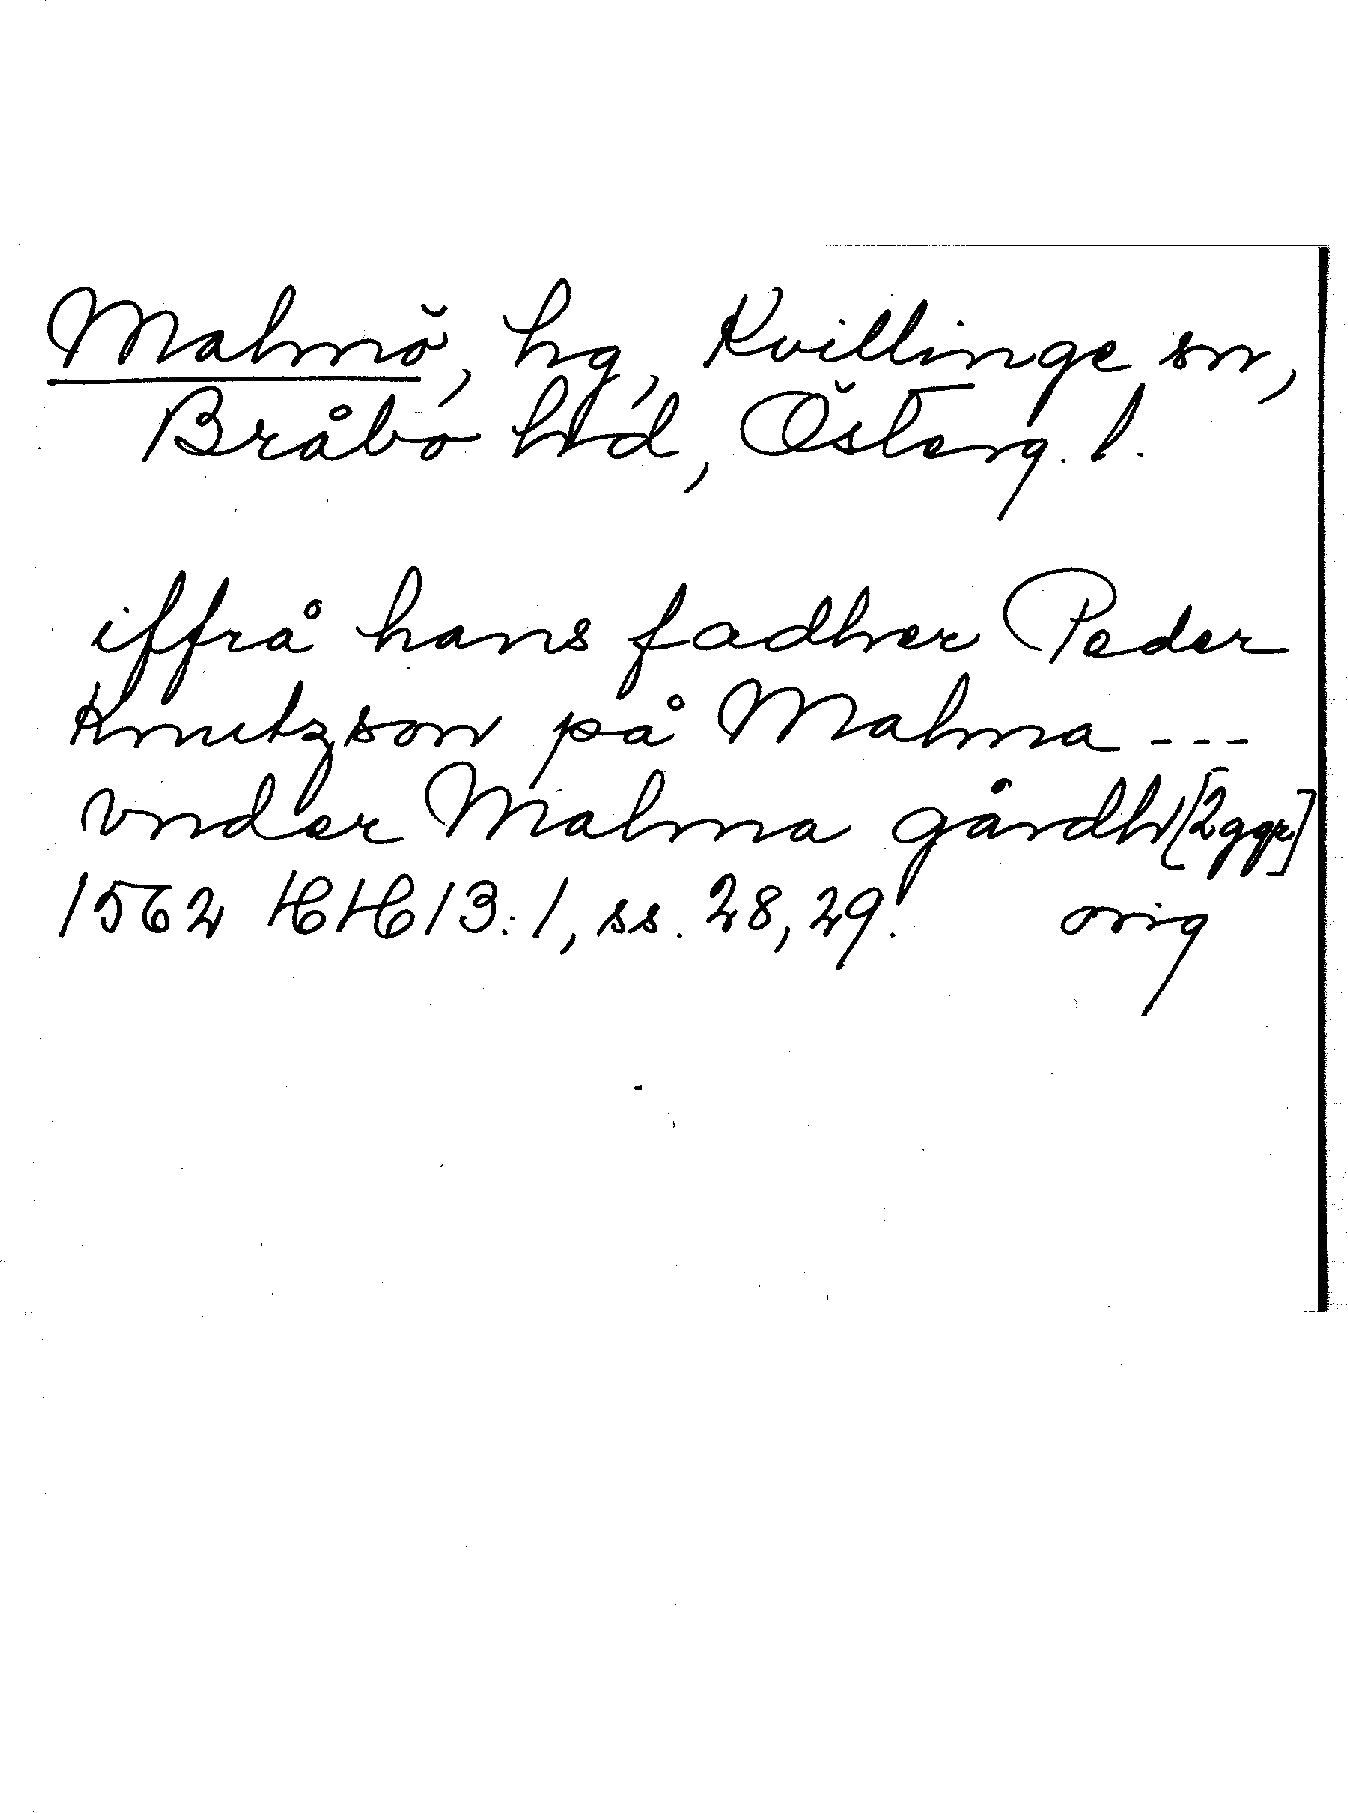 Malmö, hg, Kvillinge sn,
Bråbo hd, Österg. l.
iffrå hans fadher Peder
Knutzson på Malma ---
vnder Malma gårdh [2 ggr]
1562 HH 13:1, ss. 28, 29. orig